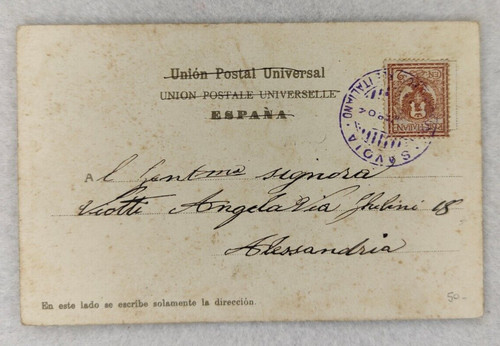 Unión Postal Universal
UNION POSTALE UNIVERSELLE
ESPAÑA
SAVOIA
ITALIANO
Al Gentma signora
Viotti Angela Via Ghilini 18
Alessandria
En este lado se escribe solamente la dirección.
50-